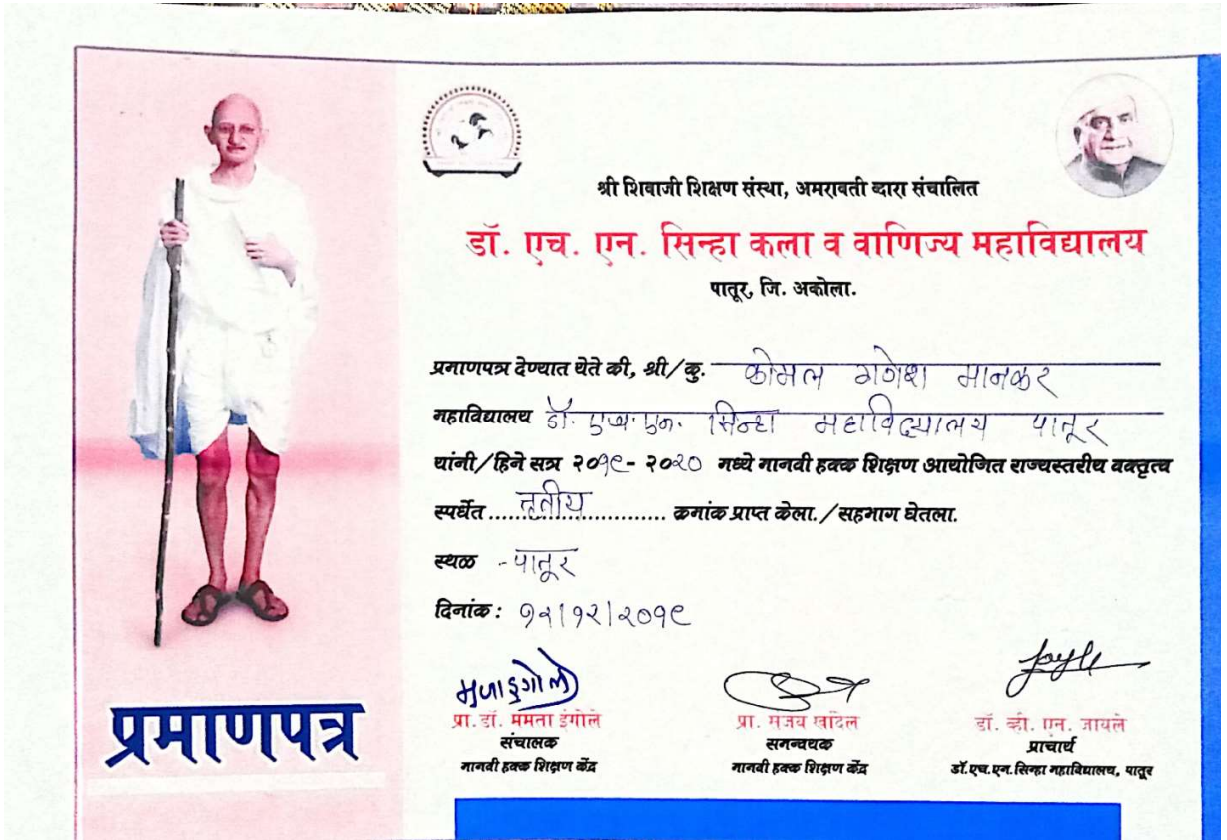 श्री शिवाजी शिक्षण संस्था, अमरावती व्दारा संचालित
डॉ. एच. एन. सिन्हा कला व वाणिज्य महाविद्यालय
पातूर, जि. अकोला.
प्रमाणपत्र देण्यात येते की, श्री/कु. कोमल गणेश मानकर
महाविद्यालय डॉ. एच. एन. सिन्हा महाविद्यालय पातूर
यांनी/हिने सत्र २०१९- २०२० मध्ये मानवी हक्क शिक्षण आयोजित राज्यस्तरीय वक्तृत्व
स्पर्धेत ...... तृतीय ...................... क्रमांक प्राप्त केला./सहभाग घेतला.
स्थळ - पातूर
दिनांक : १२/१२/२०१९
प्रा. डॉ. ममता इंगोले
संचालक
मानवी हक्क शिक्षण केंद्र
प्रा. संजय खांदेल
समन्वयक
मानवी हक्क शिक्षण केंद्र
डॉ. व्ही. एन. जायले
प्राचार्य
डॉ.एच.एन.सिन्हा महाविद्यालय, पातूर
प्रमाणपत्र